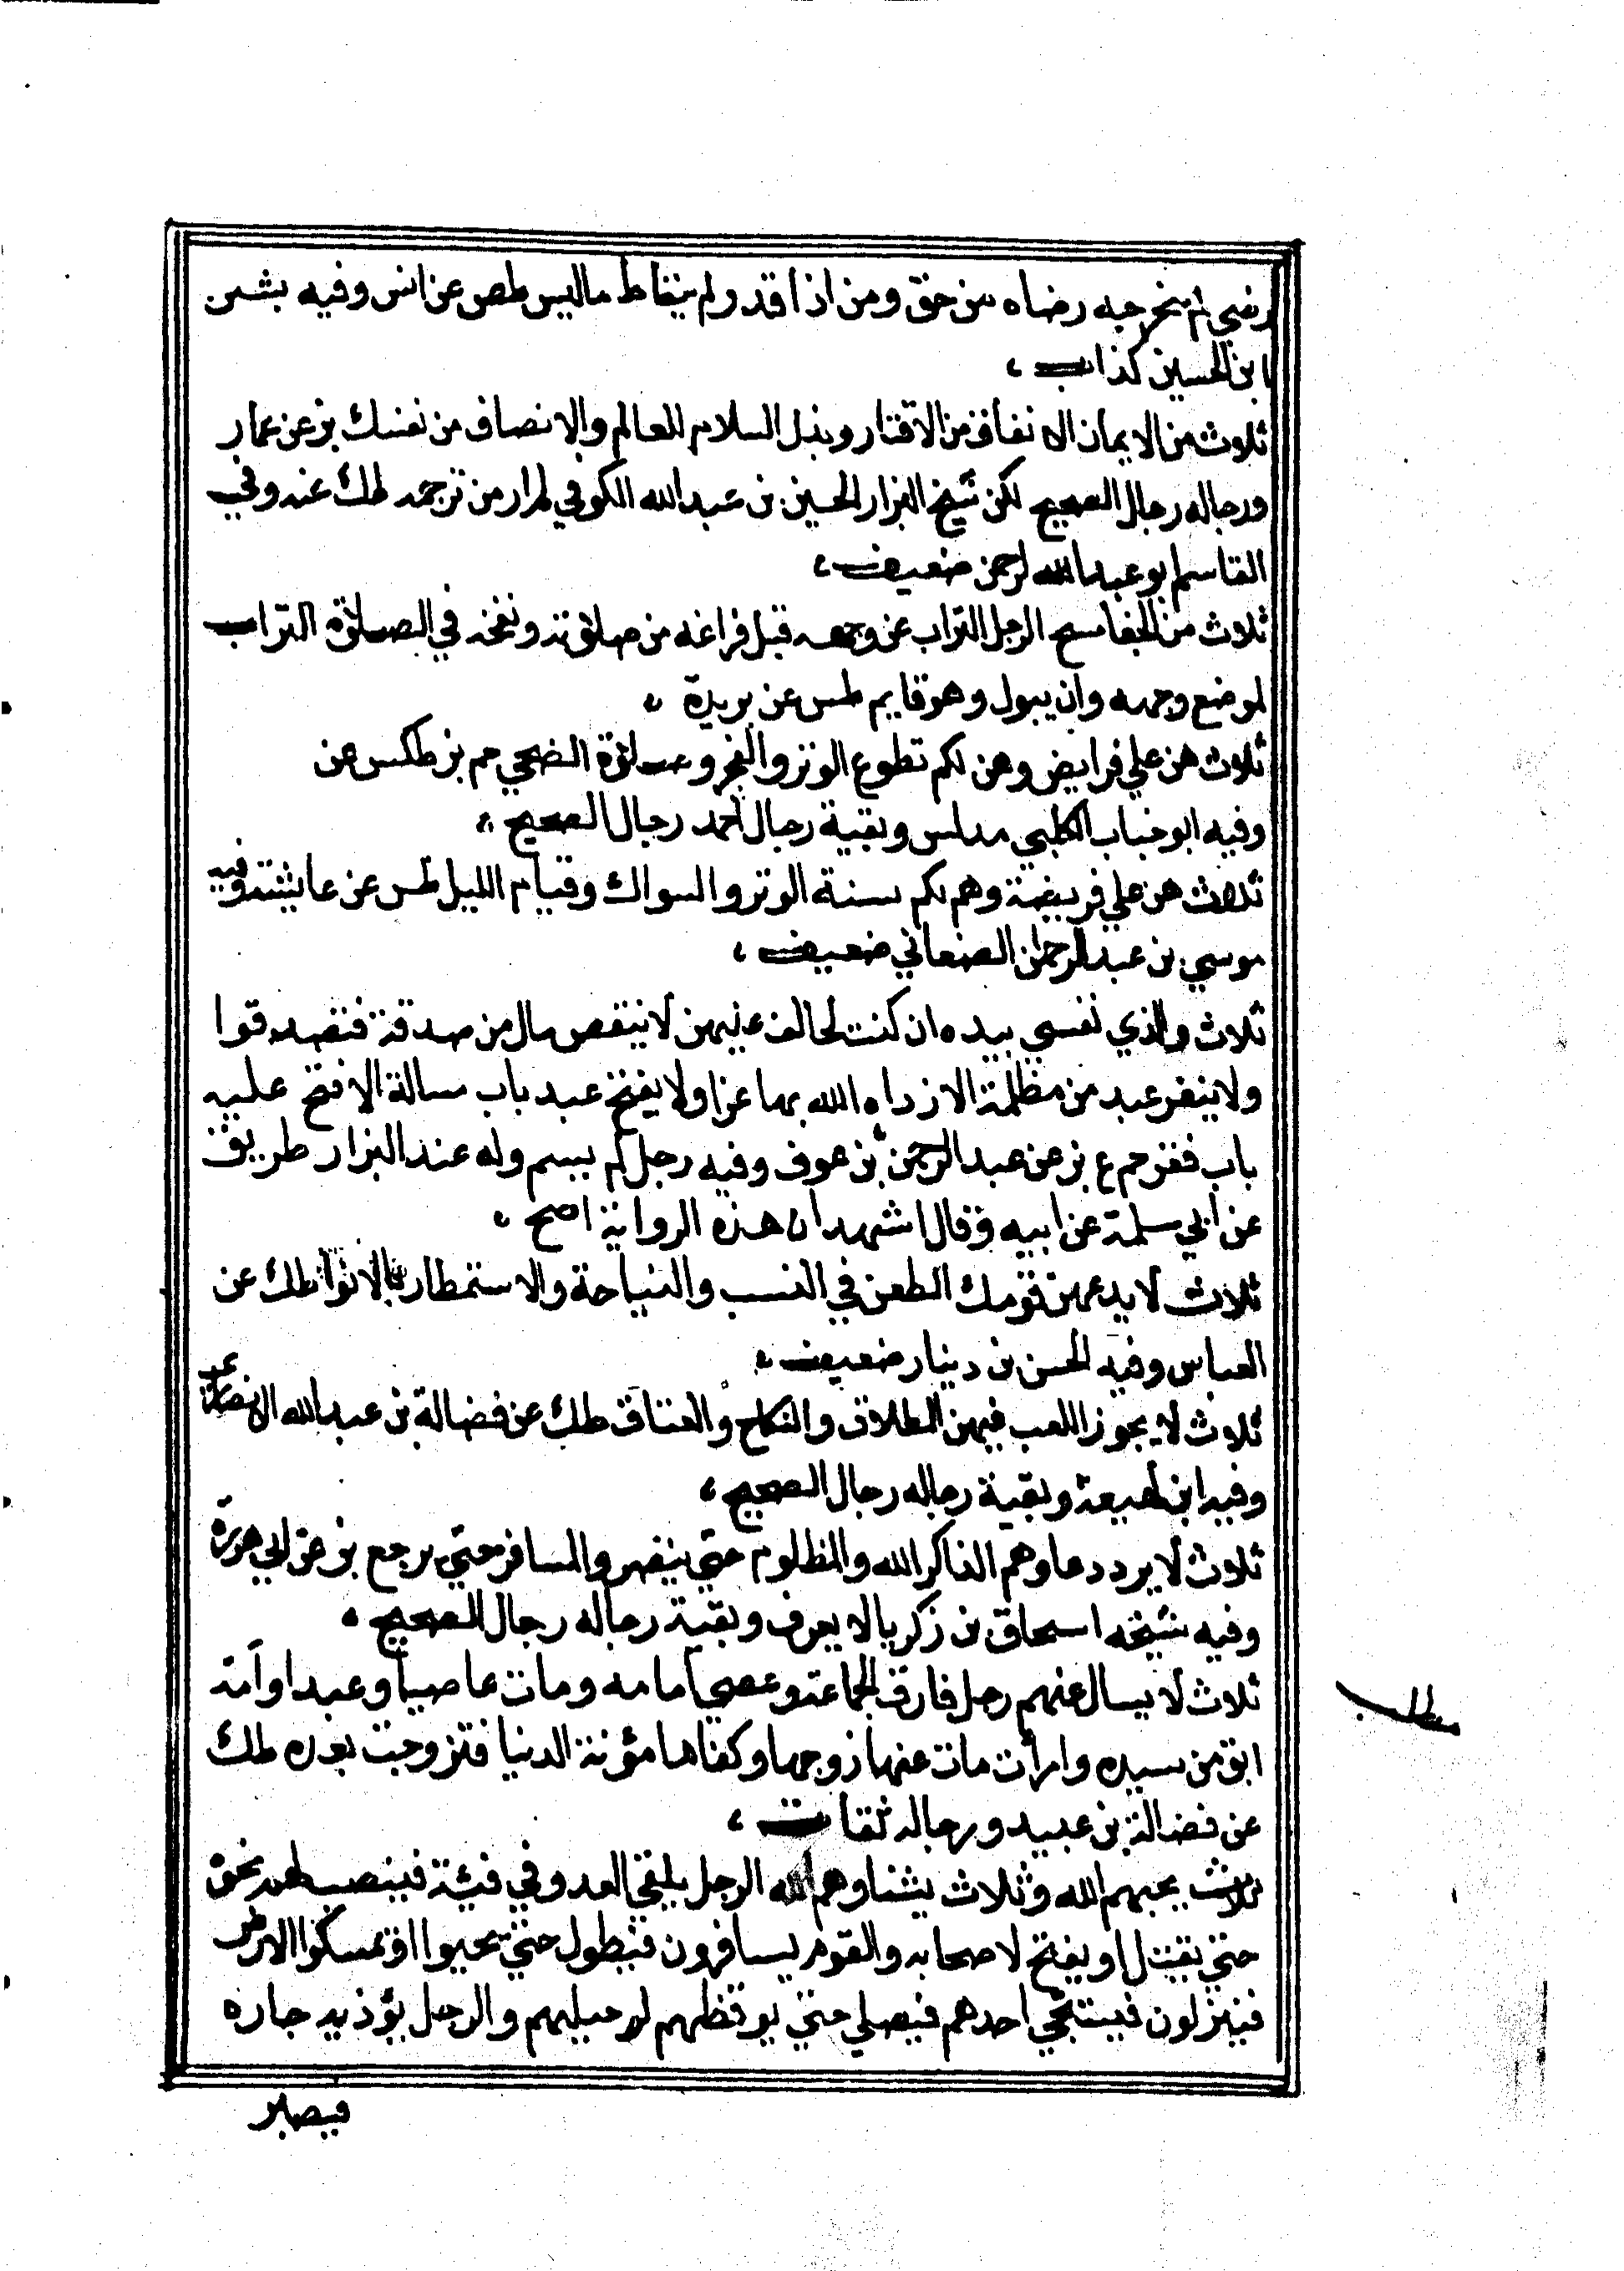 رضي لم يخرجه رضاه من حق ومن اذا قدر لم يتعاط ما ليس طص عن انس وفيه بشر
ابن الحسين كذاب
ثلاث من الايمان الانفاق من الاقتار وبذل السلام للعالم والانصاف من نفسك بز عن عمار
ورجاله رجال الصحيح لكن شيخ البزار الحسين بن عبد الله الكوفي لم ار من ترجمه طك عنه وفي
القاسم ابو عبد الله الرحمن ضعيف
ثلاث من الجفا مسح الرجل التراب عن وجهه قبل فراغه من صلاته ونفخه في الصلاة التراب
لموضع وجهه وان يبول وهو قايم طس عن بريدة
ثلاث هن علي فرايض وهن لكم تطوع الوتر والفجر وصلاة الضحي حم بز طكس عن
وفيه ابو جناب الكلبي مدلس وبقية رجال احمد رجال الصحيح
ثلاث هن علي فريضة وهم لكم سنة الوتر والسواك وقيام الليل طس عن عايشة وفيه
موسي بن عبد الرحمان الصنعاني ضعيف
ثلاث والذي نفسي بيده ان كنت لحالف عليهن لا ينقص مال من صدقة فتصدقوا
ولا يغفر عبد من مظلمة الا زداه الله بها عزا ولا يفتح عبد باب مسالة الا فتح عليه
باب فقر حم ع بز عن عبد الرحمن بن عوف وفيه رجل لم يسم وله عند البزار طريق
عن ابي سلمة عن ابيه وقال اشهد ان هذه الرواية اصح
ثلاث لا يدعهن قومك الطعن في النسب والنياحة والاستمطار بالانوا طك عن
العباس وفيه الحسن بن دينار ضعيف
ثلاث لا يجوز اللعب فيهن الطلاق والنكاح والعتاق طك عن فضالة بن عبد الله الانصاري
وفيه ابن لهيعة وبقية رجاله رجال الصحيح
ثلاث لا يرد دعاوهم الذاكر الله والمظلوم حتي ينصر والمسافر حتي يرجع بز عن ابي هريرة
وفيه شيخه اسحاق بن زكريا لا يعرف وبقية رجاله رجال الصحيح
ثلاث لا يسال عنهم رجل فارق الجماعة وعصي امامه ومات عاصيا وعبد او امة
ابق من سيده وامرأت مات عنها زوجها وكفاها مؤنة الدنيا فتزوجت بعده طك
عن فضالة بن عبيد ورجاله ثقات
ثلاث يحبهم الله وثلاث يشناوهم الله الرجل يلقي العدو في فئة فينصب لهم نحره
حتي يقتل او يفتح لاصحابه والقوم يسافرون فيطول حتي يحبوا ان يمسكوا الارض
فينزلون فيتنحي احدهم فيصلي حتي يوقظهم لرحيلهم والرجل يؤذيه جاره
فيصبر
مطلب